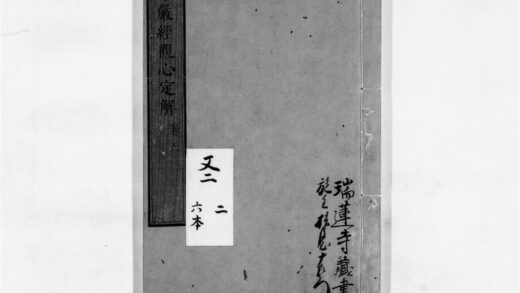 瑞蓮寺藏書
嚴經觀心定解 卷六
又二
二
六本